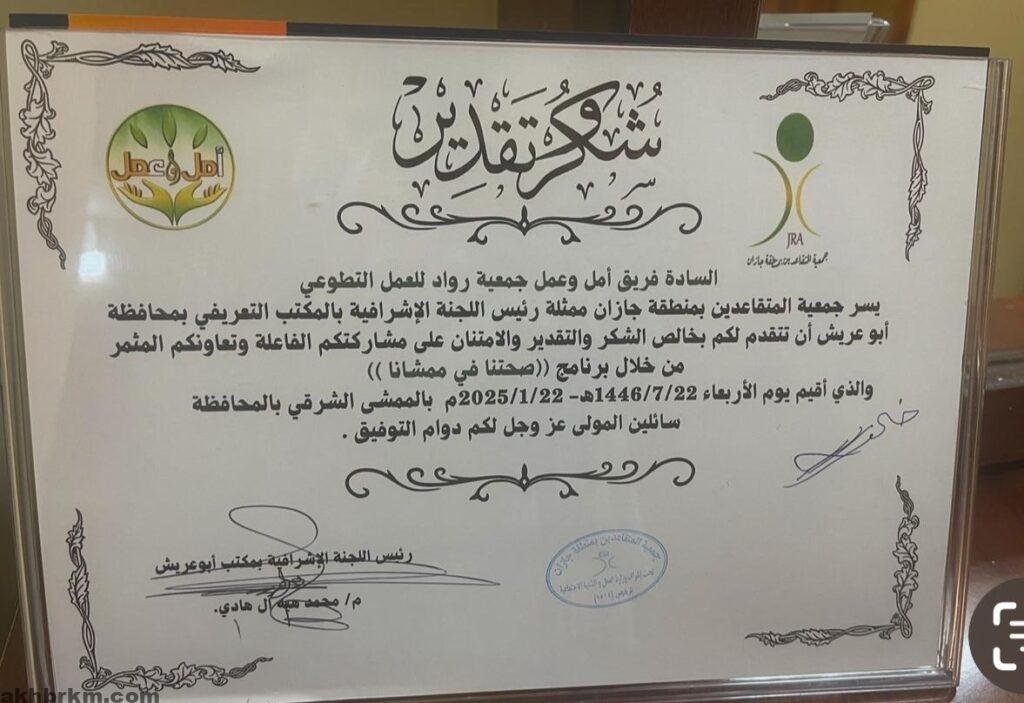 شكر وتقدير
أمل وعمل
JRA
جمعية المتقاعدين بمنطقة جازان
السادة فريق أمل وعمل جمعية رواد للعمل التطوعي
يسر جمعية المتقاعدين بمنطقة جازان ممثلة رئيس اللجنة الإشرافية بالمكتب التعريفي بمحافظة
أبو عريش أن تتقدم لكم بخالص الشكر والتقدير والامتنان على مشاركتكم الفاعلة وتعاونكم المثمر
من خلال برنامج ((صحتنا في ممشانا ))
والذي أقيم يوم الأربعاء 1446/7/22هـ- 2025/1/22م بالممشى الشرقي بالمحافظة
سائلين المولى عز وجل لكم دوام التوفيق .
رئيس اللجنة الإشرافية بمكتب أبوعريش
م/ محمد هبه آل هادي.
جمعية المتقاعدين بمنطقة جازان
akhbrkm.com